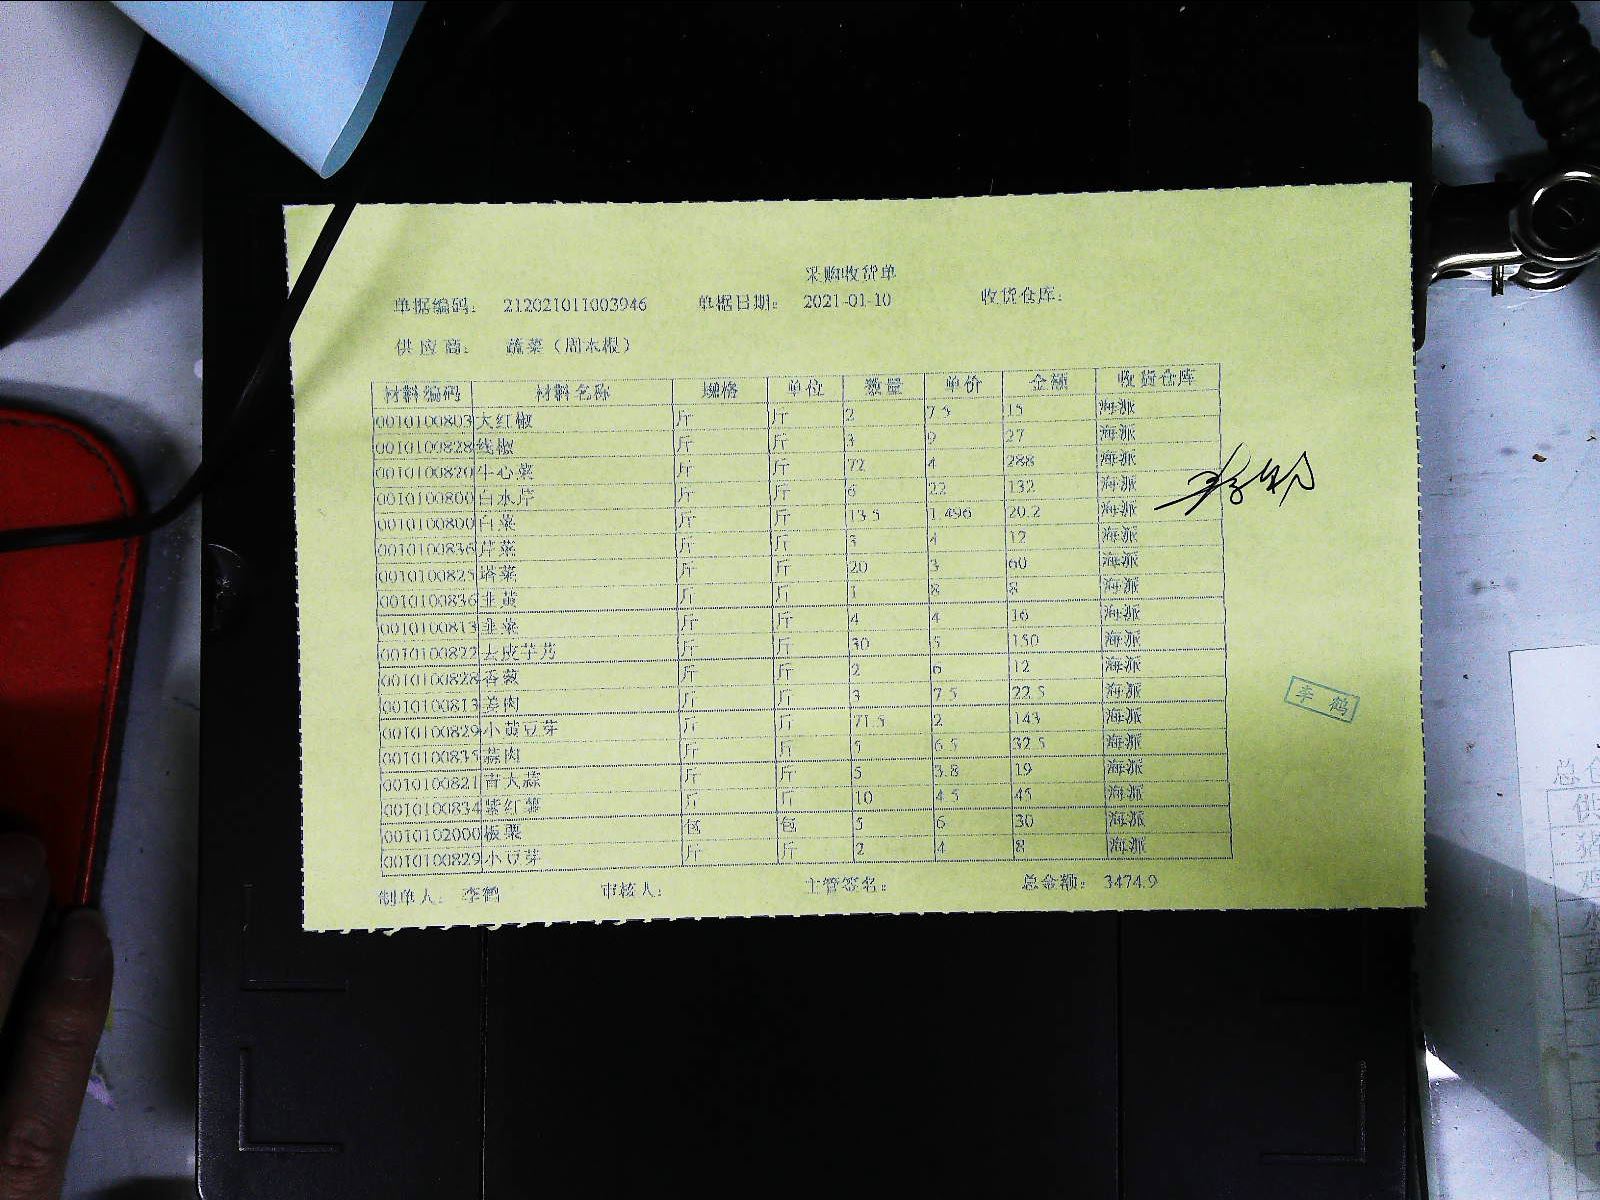 采购收货单
单据编码： 212021011003946 单据日期： 2021-01-10 收货仓库：
供应商： 蔬菜（周本根）
材料编码 材料名称 规格 单位 数量 单价 金额 收货仓库
0010100803 大红椒 斤 斤 2 7.5 15 海派
0010100828 线椒 斤 斤 3 9 27 海派
0010100820 牛心菜 斤 斤 72 4 288 海派
0010100800 白水芹 斤 斤 6 22 132 海派
0010100800 白菜 斤 斤 13.5 1.496 20.2 海派
0010100836 芹菜 斤 斤 3 4 12 海派
0010100825 塔菜 斤 斤 20 3 60 海派
0010100836 韭黄 斤 斤 1 8 8 海派
0010100813 韭菜 斤 斤 4 4 16 海派
0010100822 去皮芋艿 斤 斤 30 5 150 海派
0010100828 香葱 斤 斤 2 6 12 海派
0010100813 姜肉 斤 斤 3 7.5 22.5 海派
0010100829 小黄豆芽 斤 斤 71.5 2 143 海派
0010100835 蒜肉 斤 斤 5 6.5 32.5 海派
0010100821 青大蒜 斤 斤 5 3.8 19 海派
0010100834 紫红薯 斤 斤 10 4.5 45 海派
0010102000 板栗 包 包 5 6 30 海派
0010100829 小豆芽 斤 斤 2 4 8 海派
李鹤
制单人： 李鹤 审核人： 主管签名： 总金额： 3474.9
总仓
供